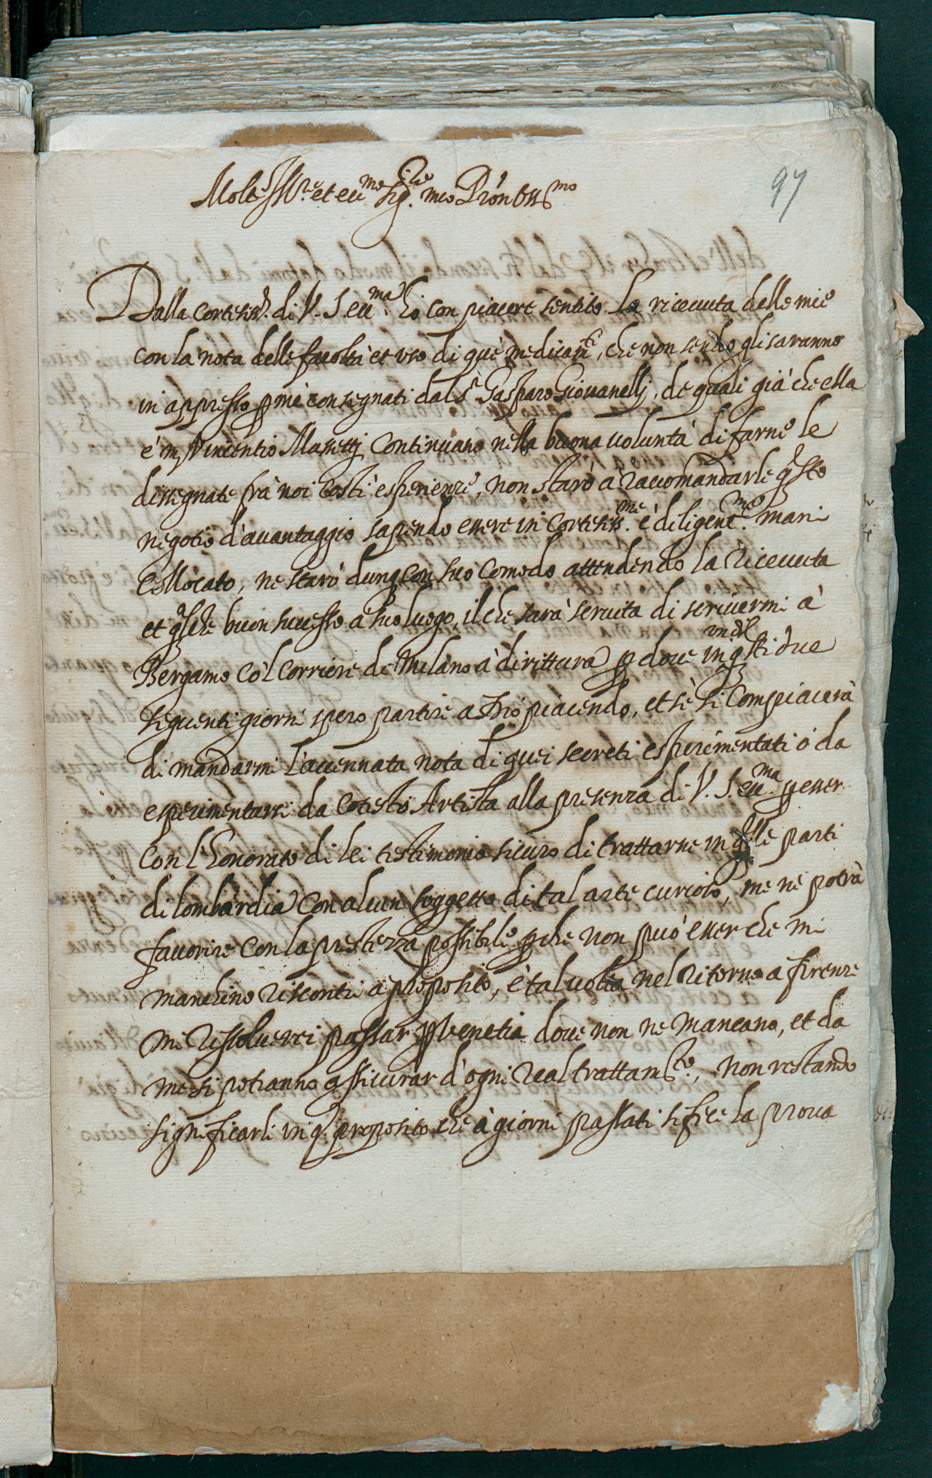 97
Molt Ill.re et ecc.mo Sig.re mio P'ron oss.mo
Dalla cortesia di V. S. ecc.ma hò con piacere sentito la riceuuta delle mie
con la nota delle facoltà et uso di què medicam.ti, che non sendo gli saranno
in appresso p mè consegnati dal S.r Gasparo Giouanelli, de quali già che ella
è in Vincentio Masetti continuano nella buona voluntà di farne le
disegnate frà noi costì esperienze, non starò à racomandarle q.sto
negotio d'auantaggio sapendo essere in cortesiss.me è diligent.me mani
collocato, ne starò dunq. con suo comodo attendendo la riceuuta
et q.lche buon successo a suo luogo, il che sarà seruita di scriuermi à
Bergamo col Corriere de Milano à dirittura p doue in q.sti due
sequenti giorni spero partire a Dio piacendo, et sè si compiacerà
di mandarmi l'accennata nota di quei secreti esperimentati ò da
esperimentarsi da cotesto Artista alla presenza di V. S. ecc.ma p esser
con l'honorato di lei testimonio sicuro di trattarne in q.lle parti
di lombardia con alcun soggetto di tal arte curioso, me ne potrà
fauorire con la prestezza possibile p che non può esser che mi
manchino riscontri à proposito, è tal uolta nel ritorno a firenze
mi rissoluerei passar p Venetia doue non ne mancano, et da
me si potranno assicurar d'ogni real trattam.to, non restando
significarli in q.to proposito che à giorni passati si fece la proua